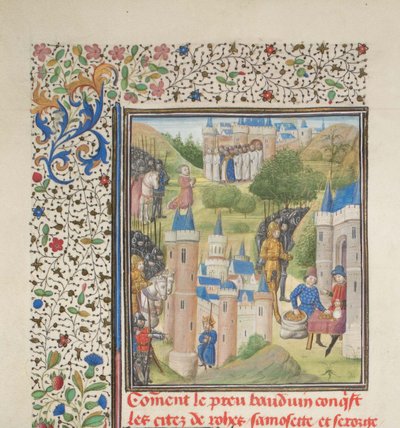 Coment le preu bauduin conqst
les citez de rohes samosette et serorge